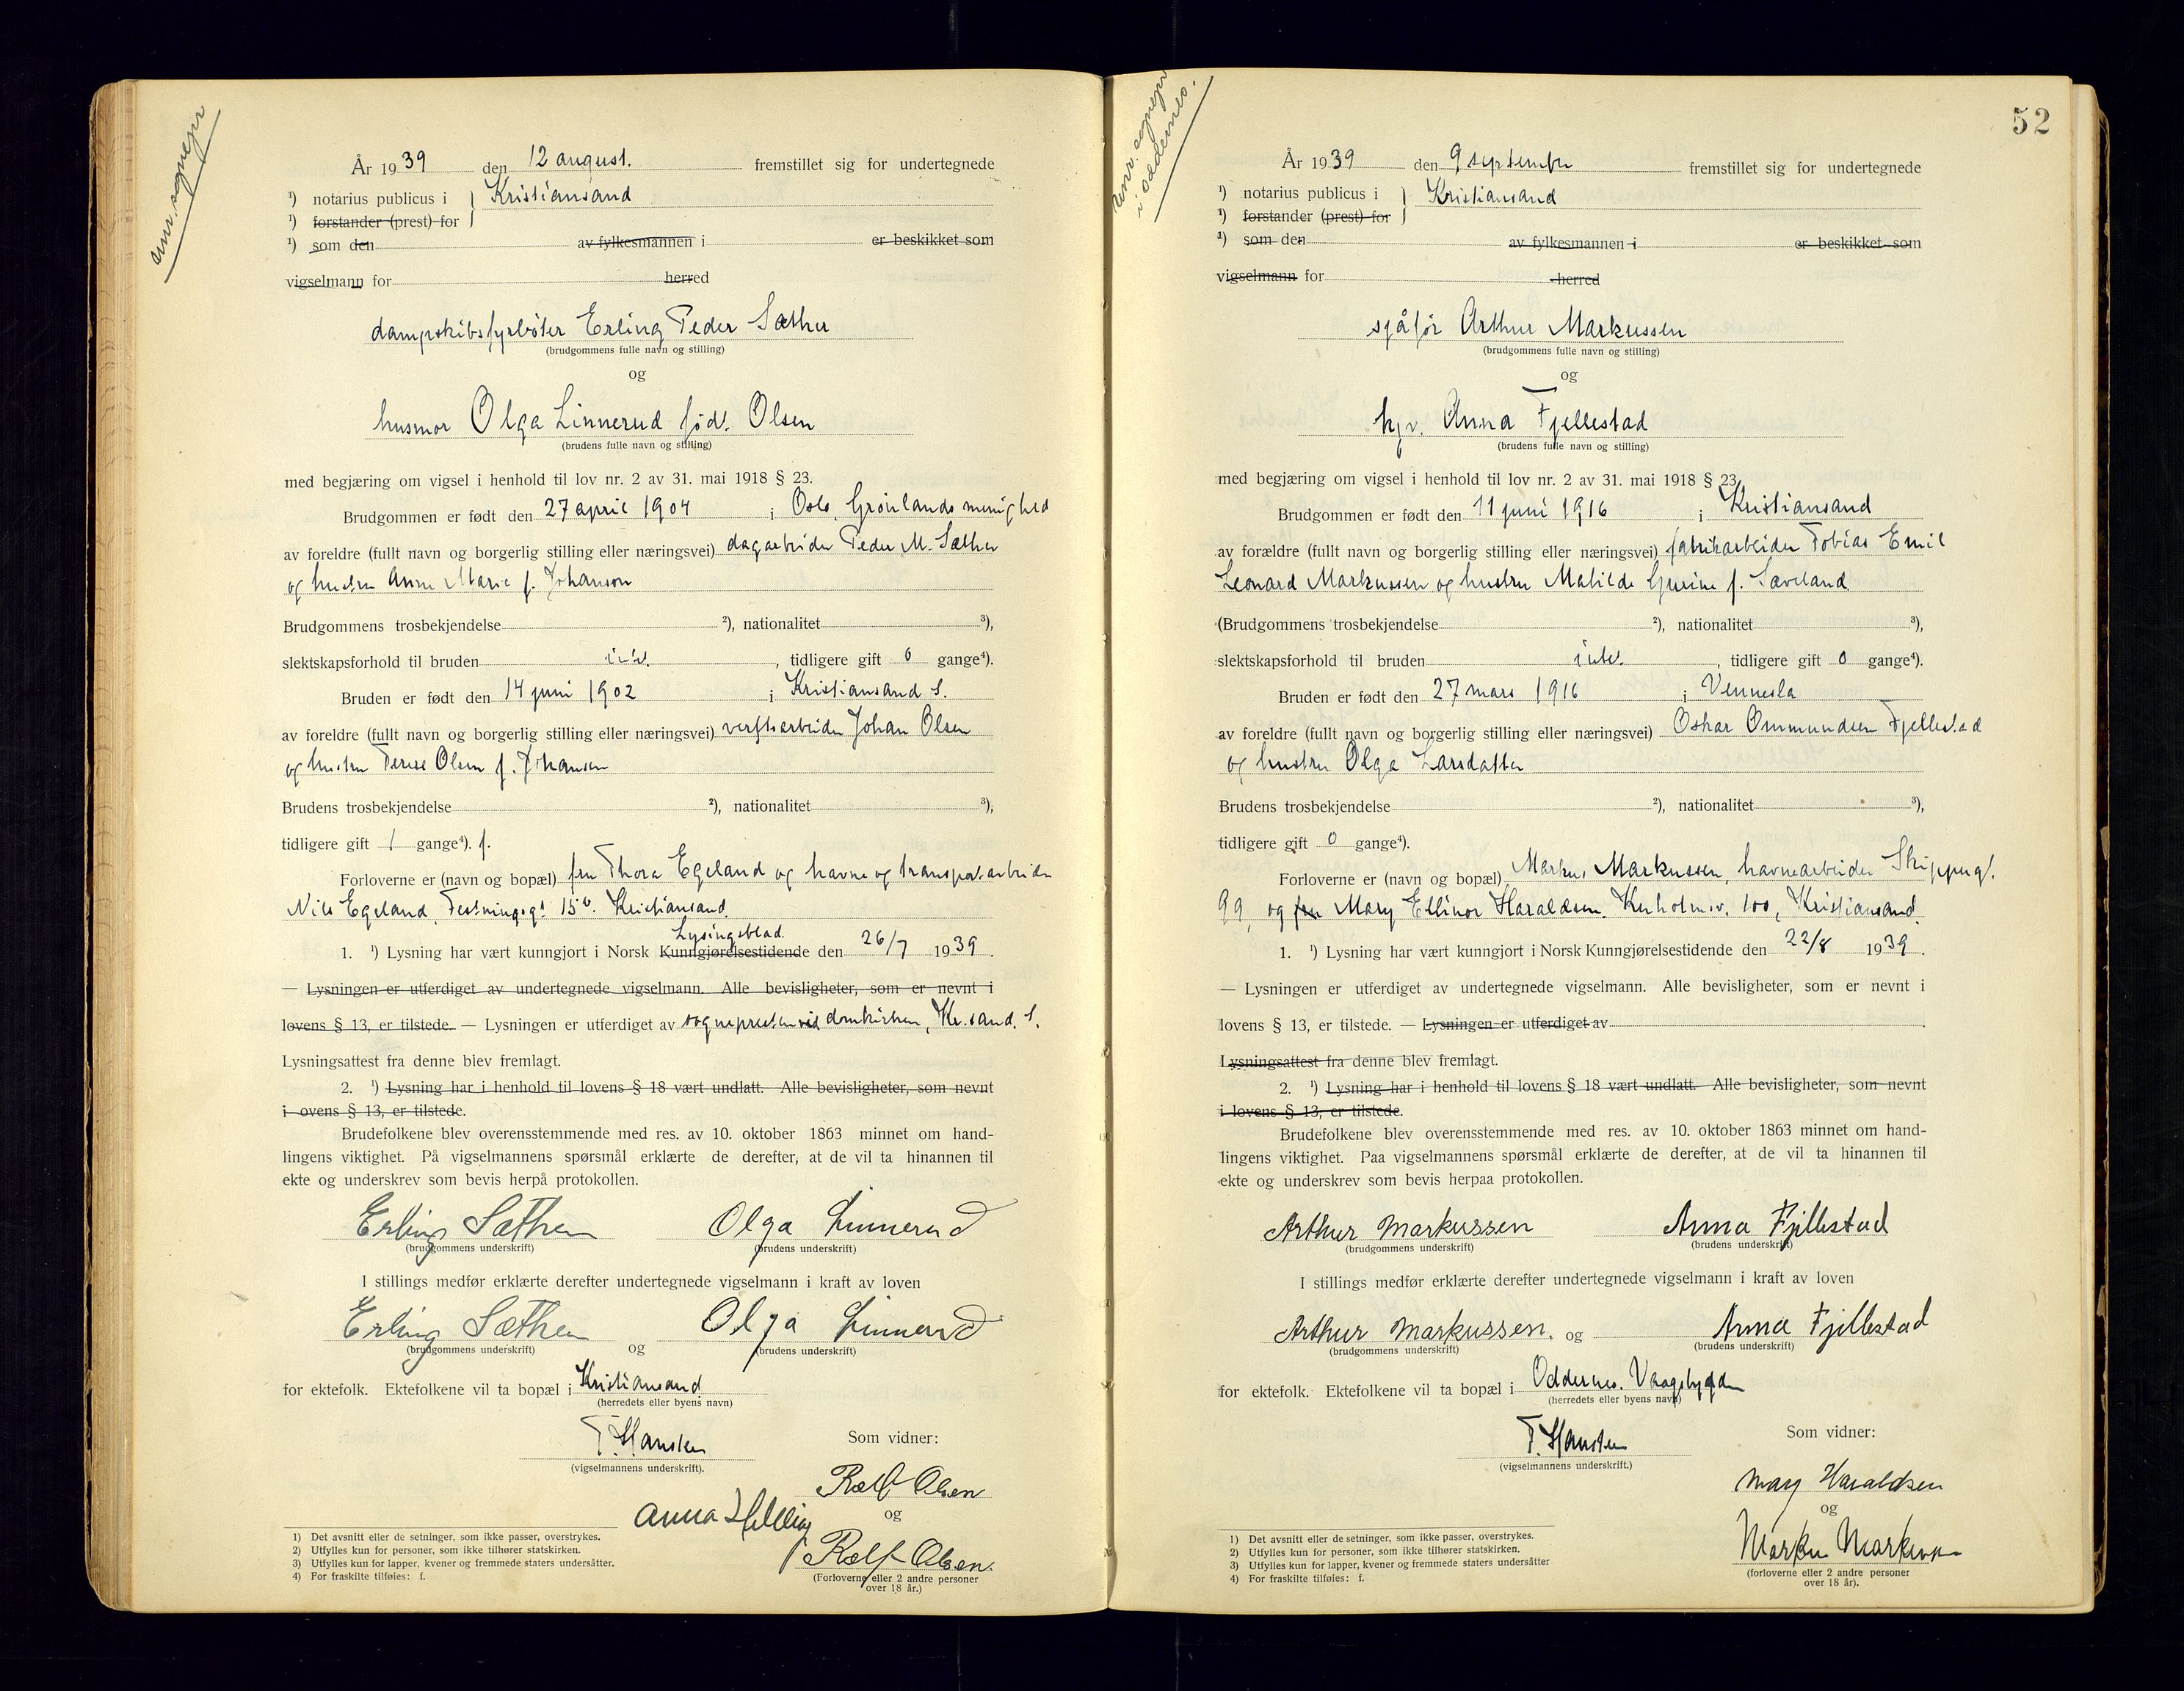 År 1939 den 12 august. fremstillet sig for undertegnede
¹) notarius publicus i } Kristiansand
¹) forstander (prest) for
¹) som den av fylkesmannen i er beskikket som
vigselmann for herred
dampskibsfyrbøter Erling Peder Sæther
(brudgommens fulle navn og stilling)
og
husmor Olga Linnerud fød. Olsen
(brudens fulle navn og stilling)
med begjæring om vigsel i henhold til lov nr. 2 av 31. mai 1918 § 23.
Brudgommen er født den 27 april 1904 i Oslo, Grønlands menighed
av foreldre (fullt navn og borgerlig stilling eller næringsvei) dagarbeider Peder M. Sæther
og hustru Anne Marie f. Johanson
Brudgommens trosbekjendelse ²), nationalitet ³),
slektskapsforhold til bruden , tidligere gift 0 gange⁴).
Bruden er født den 14 juni 1902 i Kristiansand S.
av foreldre (fullt navn og borgerlig stilling eller næringsvei) verftsarbeider Johan Olsen
og hustru Terese Olsen f. Johansen
Brudens trosbekjendelse ²), nationalitet ³),
tidligere gift 1 gange⁴). f.
Forloverne er (navn og bopæl) fru Thora Egeland og havne og transportarbeider
Nils Egeland, Festningsgt 15b. Kristiansand.
Lysingsblad.
1. ¹) Lysning har vært kunngjort i Norsk Kunngjørelsestidende den 26/7 1939.
— Lysningen er utferdiget av undertegnede vigselmann. Alle bevisligheter, som er nevnt i
lovens § 13, er tilstede. — Lysningen er utferdiget av sognepresten ved domkirken, Kr.sand. S.
Lysningsattest fra denne blev fremlagt.
2. ¹) Lysning har i henhold til lovens § 18 vært undlatt. Alle bevisligheter, som nevnt
i ovens § 13, er tilstede.
Brudefolkene blev overensstemmende med res. av 10. oktober 1863 minnet om hand-
lingens viktighet. På vigselmannens spørsmål erklærte de derefter, at de vil ta hinannen til
ekte og underskrev som bevis herpå protokollen.
Erling Sæther Olga Linnerud
(brudgommens underskrift) (brudens underskrift)
I stillings medfør erklærte derefter undertegnede vigselmann i kraft av loven
Erling Sæther og Olga Linnerud
(brudgommens underskrift) (brudens underskrift)
for ektefolk. Ektefolkene vil ta bopæl i Kristiansand
(herredets eller byens navn)
T. Hansten Som vidner:
(vigselmannens underskrift).
Rolf Olsen
og
Anna
Rolf Olsen.
(Forloverne eller 2 andre personer
over 18 år.)
1) Det avsnitt eller de setninger, som ikke passer, overstrykes.
2) Utfylles kun for personer, som ikke tilhører statskirken.
3) Utfylles kun for lapper, kvener og fremmede staters undersåtter.
4) For fraskilte tilføies: f.
52
i oddernes.
År 1939 den 9 september fremstillet sig for undertegnede
¹) notarius publicus i } Kristiansand
¹) forstander (prest) for
¹) som den av fylkesmannen i er beskikket som
vigselmann for herred
sjåfør Arthur Markussen
(brudgommens fulle navn og stilling)
og
hjv. Anna Fjellestad
(brudens fulle navn og stilling)
med begjæring om vigsel i henhold til lov nr. 2 av 31. mai 1918 § 23.
Brudgommen er født den 11 juni 1916 i Kristiansand
av forældre (fullt navn og borgerlig stilling eller næringsvei) fabrikarbeider Tobias Emil
Leonard Markussen og hustru Matilde Gurine f. Sæveland
(Brudgommens trosbekjendelse ²), nationalitet ³),
slektskapsforhold til bruden intet. , tidligere gift 0 gange⁴).
Bruden er født den 27 mars 1916 i Vennesla
av foreldre (fullt navn og borgerlig stilling eller næringsvei) Oskar Ommundsen Fjellestad
og hustru Olga Larsdatter
Brudens trosbekjendelse ²), nationalitet ³),
tidligere gift 0 gange⁴).
Forloverne er (navn og bopæl) Markus Markussen, havnearbeider Skippergt.
99, og fru Mary Ellinor Haraldsen. Kuholmsv. 100, Kristiansand.
1. ¹) Lysning har vært kunngjort i Norsk Kunngjørelsestidende den 22/8 1939.
— Lysningen er utferdiget av undertegnede vigselmann. Alle bevisligheter, som er nevnt i
lovens § 13, er tilstede. — Lysningen er utferdiget av .
Lysningsattest fra denne blev fremlagt.
2. ¹) Lysning har i henhold til lovens § 18 vært undlatt. Alle bevisligheter, som nevnt
i lovens § 13, er tilstede.
Brudefolkene blev overensstemmende med res. av 10. oktober 1863 minnet om hand-
lingens viktighet. Paa vigselmannens spørsmål erklærte de derefter, at de vil ta hinannen til
ekte og underskrev som bevis herpaa protokollen.
Arthur Markussen Anna Fjellestad
(brudgommens underskrift) (brudens underskrift)
I stillings medfør erklærte derefter undertegnede vigselmann i kraft av loven
Arthur Markussen. og Anna Fjellestad
(brudgommens underskrift) (brudens underskrift)
for ektefolk. Ektefolkene vil ta bopæl i Oddernes. Vaagsbygden
(herredets eller byens navn)
T. Hansten Som vidner:
(vigselmannens underskrift.)
Mary Haraldsen
og
Markus Markussen
(forloverne eller 2 andre personer
over 18 år).
1) Det avsnitt eller de setninger, som ikke passer, overstrykes.
2) Utfylles kun for personer, som ikke tilhører statskirken.
3) Utfylles kun for lapper, kvener og fremmede staters undersåtter
4) For fraskilte tilføies: f.